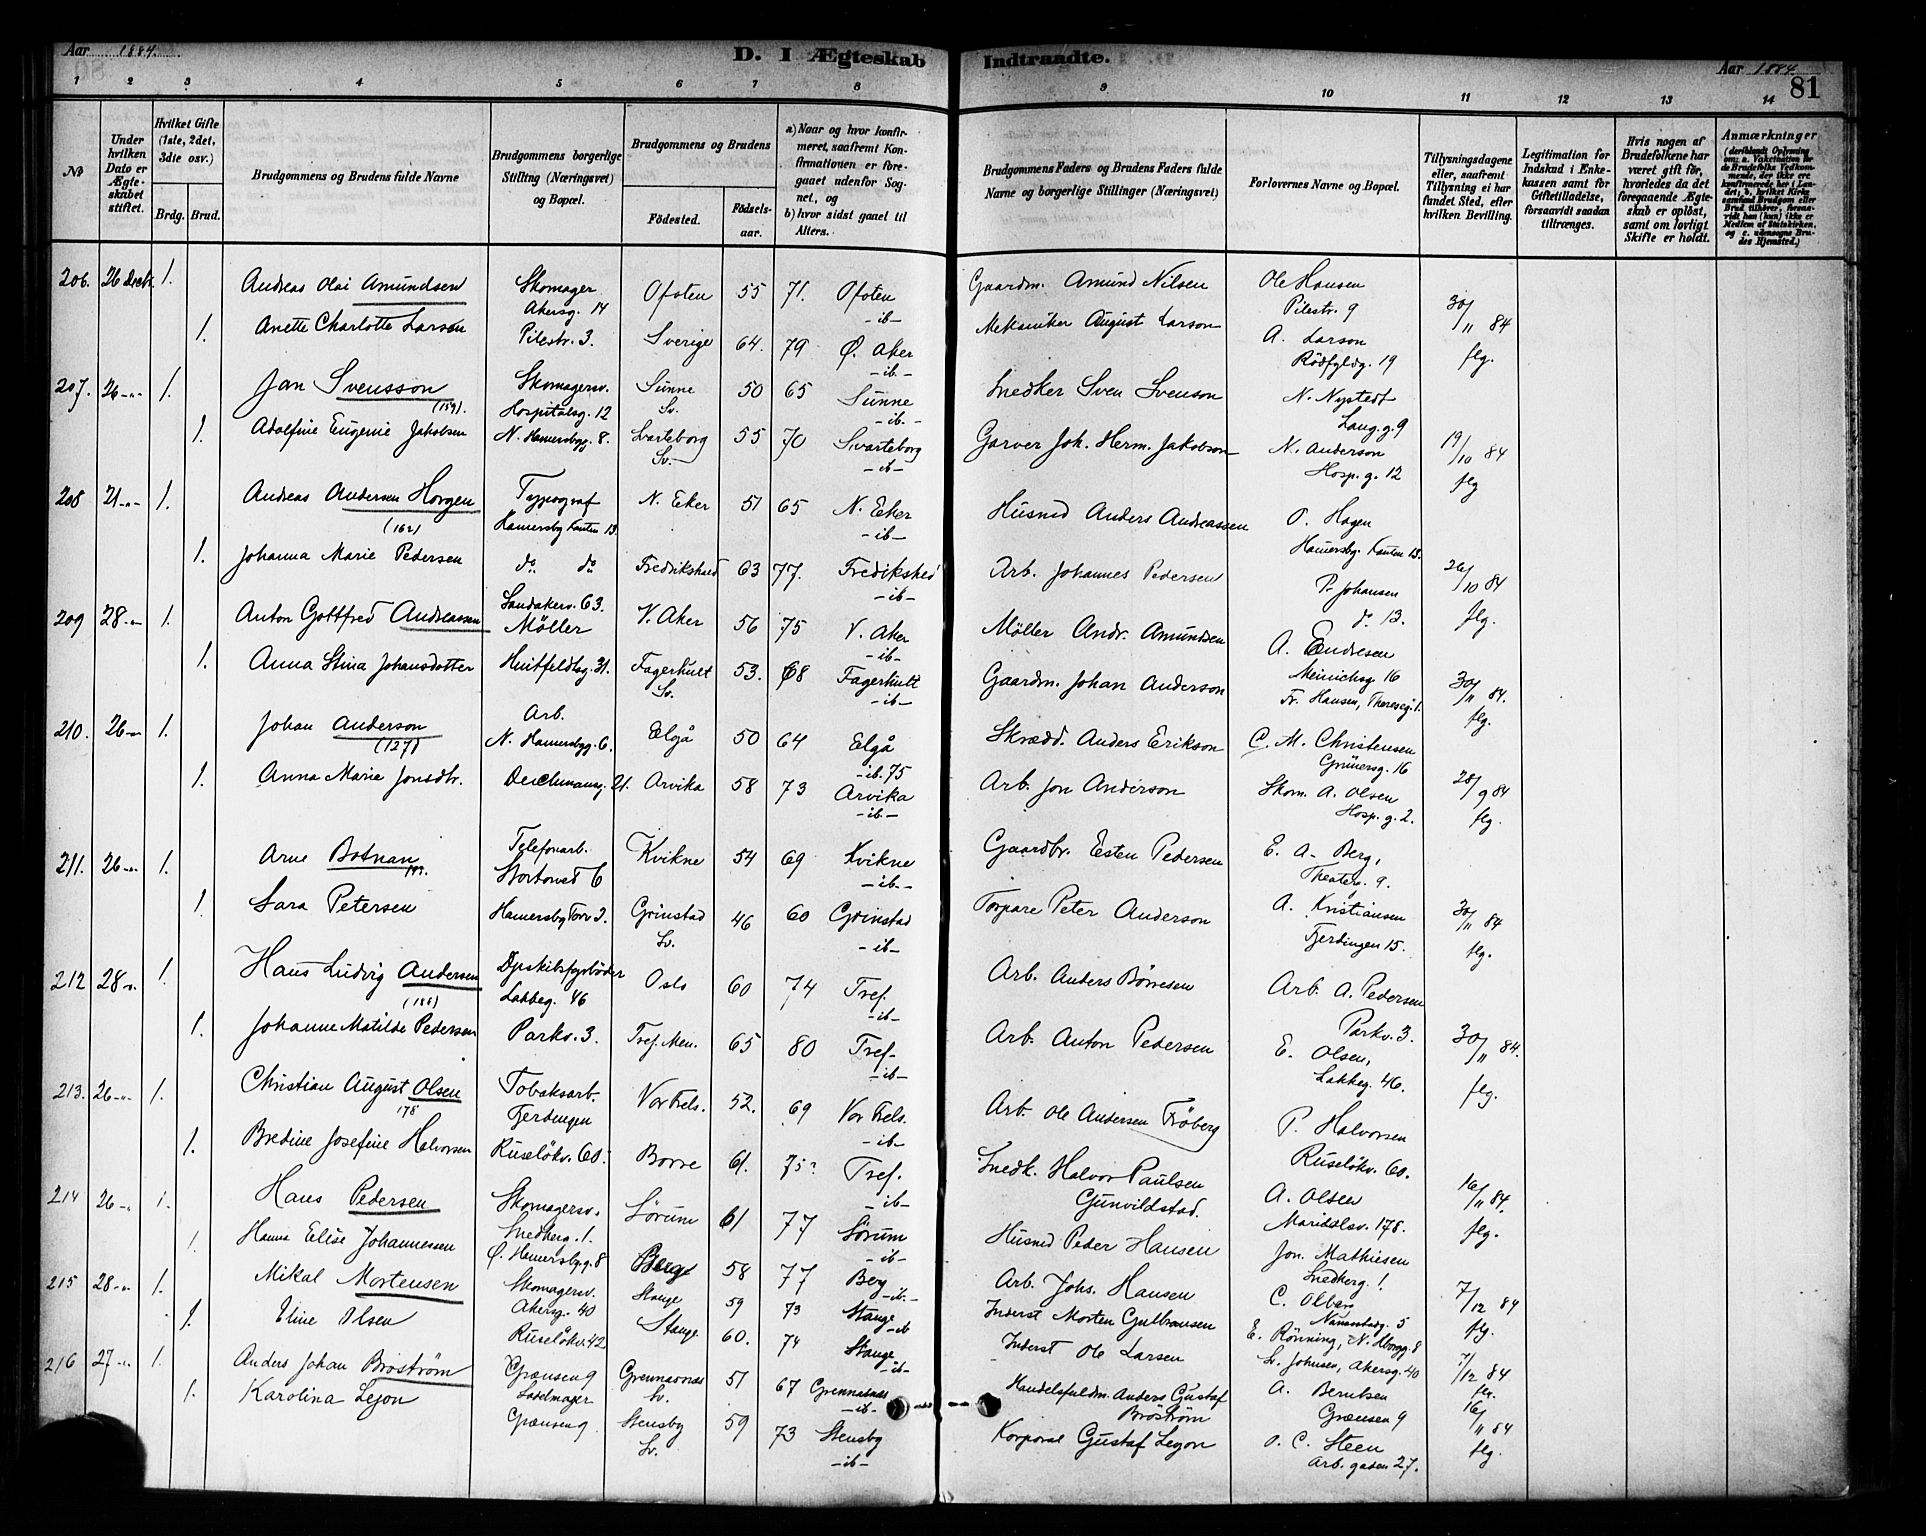 Aar 1884. D. I Ægteskab Indtraadte. Aar 1884 81
1 2 3 4 5 6 7 8 9 10 11 12 13 14
No
Under hvilken Dato er Ægteskabet stiftet.
Hvilket Gifte (1ste, 2det, 3die osv.)
Brdg. Brud.
Brudgommens og Brudens fulde Navne
Brudgommens borgerlige Stilling (Næringsvei) og Bopæl.
Brudgommens og Brudens
Fødested. Fødselsaar.
a) Naar og hvor konfirmeret, saafremt Konfirmationen er foregaaet udenfor Sognet, og
b) hvor sidst gaaet til Alters.
Brudgommens Faders og Brudens Faders fulde Navne og borgerlige Stillinger (Næringsvei)
Forlovernes Navne og Bopæl.
Tillysningsdagene eller, saafremt Tillysning ei har fundet Sted, efter hvilken Bevilling.
Legitimation for Indskud i Enkekassen samt for Giftetilladelse, forsaavidt saadan tiltrænges.
Hvis nogen af Brudefolkene har været gift før, hvorledes da det foregaaende Ægteskab er opløst, samt om lovligt Skifte er holdt.
Anmærkninger (deriblandt Oplysning om: a. Vaksination for de Brudefolks Vedkommende, der ikke ere konfirmerede her i Landet; b. hvilket Kirkesamfund Brudgom eller Brud tilhører, forsaavidt han (hun) ikke er Medlem af Statskirken, og c. udensogns Brudes Hjemsted.)
206. 26 Decb. 1. Andreas Olai Amundsen Skomager Akersg. 14 Ofoten 55 71. Ofoten -ib- Gaardm. Amund Nilsen Ole Hansen Pilestr. 9 30/11 84
1. Anette Charlotte Larson Pilestr. 3. Sverige 64. 79 Ø. Aker -ib.- Mekaniker August Larson A. Larson Rödfyldg. 19 flg.
207. 26-"- 1. Jan Svensson (159). Skomagersv. Hospitalsg. 12 Sunne Sv. 50 65 Sunne -ib.- Snedker Sven Svenson N. Nystedt Lang.g. 9 19/10 84
1. Adolfine Eugenie Jakobsen N. Hamersbgg. 8. Svarteborg Sv. 55 70 Svarteborg -ib- Garver Joh. Herm. Jakobson N. Anderson Hosp. g. 12 flg
208 21-"- 1. Andreas Andersen Horgen (162) Typograf Hamersbg Kanten 13. N. Eker 51 65 N. Eker -ib- Husmd Anders Andreassen O. Hagen Hamersbg. Kanten 13. 26/10 84
1. Johanna Marie Pedersen do. do Fredrikshald 63 77. Fredrikshd -ib- Arb. Johannes Pedersen P. Johansen do. 13. flg.
209 28-"- 1. Anton Gottfred Andreassen Sandakerv. 63. Møller V. Aker 56 75 V. Aker -ib- Møller Andr. Amundsen A. Endresen Meinichsg 16 30/11 84.
1. Anna Stina Johansdotter Huitfeldtsg. 31. Fagerhult Sv. 53. 68 Fagerhult -ib- Gaardm. Johan Anderson Fr. Hansen, Theresesg. 1. flg.
210. 26-"- 1. Johan Anderson (127) Arb. N. Hamersbgg. 6. Elgå 50 64 Elgå -ib. 75 Skrædd. Anders Erikson C. M. Christensen Grünersg. 16 28/9 84
1. Anna Marie Jonsdtr. Deichmansg. 21. Arvika 58 73 Arvika -ib- Arb. Jon Anderson Skom. A. Olsen Hosp. g. 2. flg.
211. 26-"- 1. Arne Botnan Telefonarb. Stortorvet 6 Kvikne 54 69 Kvikne -ib.- Gaardbr. Esten Pedersen E. A. Berg, Theaterg. 9. 30/11 84
1. Sara Petersen Hamersbg Torv 3. Grinstad Sv. 46 60 Grinstad -ib- Torpare Peter Anderson A. Kristiansen Fjerdingen 15. flg.
212 28-"- 1. Hans Ludvig Andersen (188) Dpskibsfyrbøder Lakkeg. 46 Oslo 60 74 Tref. -ib- Arb. Anders Børresen Arb. A. Pedersen Parkv. 3. 30/11 84.
1. Johanne Matilde Pedersen Parkv. 3. Tref. Men. 65 80 Tref. -ib- Arb. Anton Pedersen E. Olsen, Lakkeg. 46. flg.
213. 26-"- 1. Christian August Olsen 178 Tobaksarb. Fjerdingen Vor Frels. 52. 69 Vor Frels. -ib- Arb. Ole Andersen Fröberg P. Halvorsen Ruseløkv. 60. 16/11 84.
1. Bredine Josefine Halvorsen Ruseløkv. 60. Borre 61. 75? Tref. -ib- Snedk. Halvor Paulsen Gunvildstad. A. Olsen Maridalsv. 178. flg.
214 26-"- 1. Hans Pedersen Skomagersv. Snedkerg. 1. Sörum 61 77 Sörum -ib- Husmd Peder Hansen Jon. Mathiesen Snedkerg. 1. 7/12 84
1. Hanna Elise Johannessen Ø. Hamersbgg. 8 Berg 58 77 Berg -ib.- Arb. Johs. Hansen C. Olberg 5 flg.
215 28-"- 1. Mikal Mortensen Skomagersv. Akersg. 40 Stange 59 73 Stange -ib Inderst Morten Gulbransen E. Rönning, N. Hbergg. 8 7/12 84
1. Eline Olsen Ruseløkv. 42 Stange 60. 74 Stange -ib- Inderst Ole Larsen Johnsen, Akersg. 40 flg.
216 27-"- 1. Anders Johan Broström Grænsen 9 Sadelmager Grennasnas Sv. 51 67 Grennasnas -ib- Handelsfuldm. Anders Gustaf Broström A. Berntsen Grænsen 9 16/11 84
1. Karolina Lejon Grænsen 9 Stensby Sv. 59 73 Stensby -ib- Korporal Gustaf Lejon O. C. Steen Arb. gaden 27. flg.